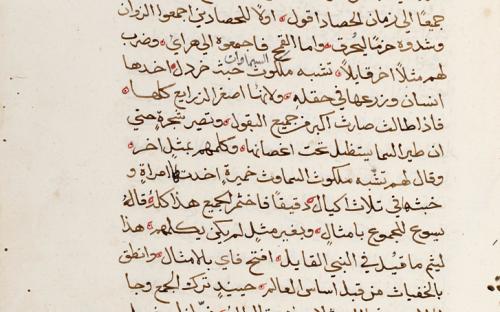 جميعًا الي زمان الحصاد اقول اولًا للحصادين اجمعوا الزوان
وشدوه حزمًا ليحرق واما القمح فاجمعوه الي هراي وضرب
لهم مثلًا اخر قايلًا تشبه ملكوت السماوات حبة خردل اخدها
انسان وزرعها في حقله ولانها اصغر الزرايع كلها
فاذا طالت صارت اكبر من جميع البقول وتصير شجرة حتي
ان طير السما يستظل تحت اغصانها وكلمهم بمثل اخر
وقال لهم تشبه ملكوت السماوت خميرة اخدتها امراة و
خبته في تلات اكيال دقيقًا فاختمر الجميع هذا كله قاله
يسوع للجموع بامثال وبغير مثل لم يكن يكلمهم هذا
ليتم ما قيل في النبي القايل افتح فاي بالامثال وانطق
بالخفيات من قبل اساس العالم حينيد ترك الجمع وجا